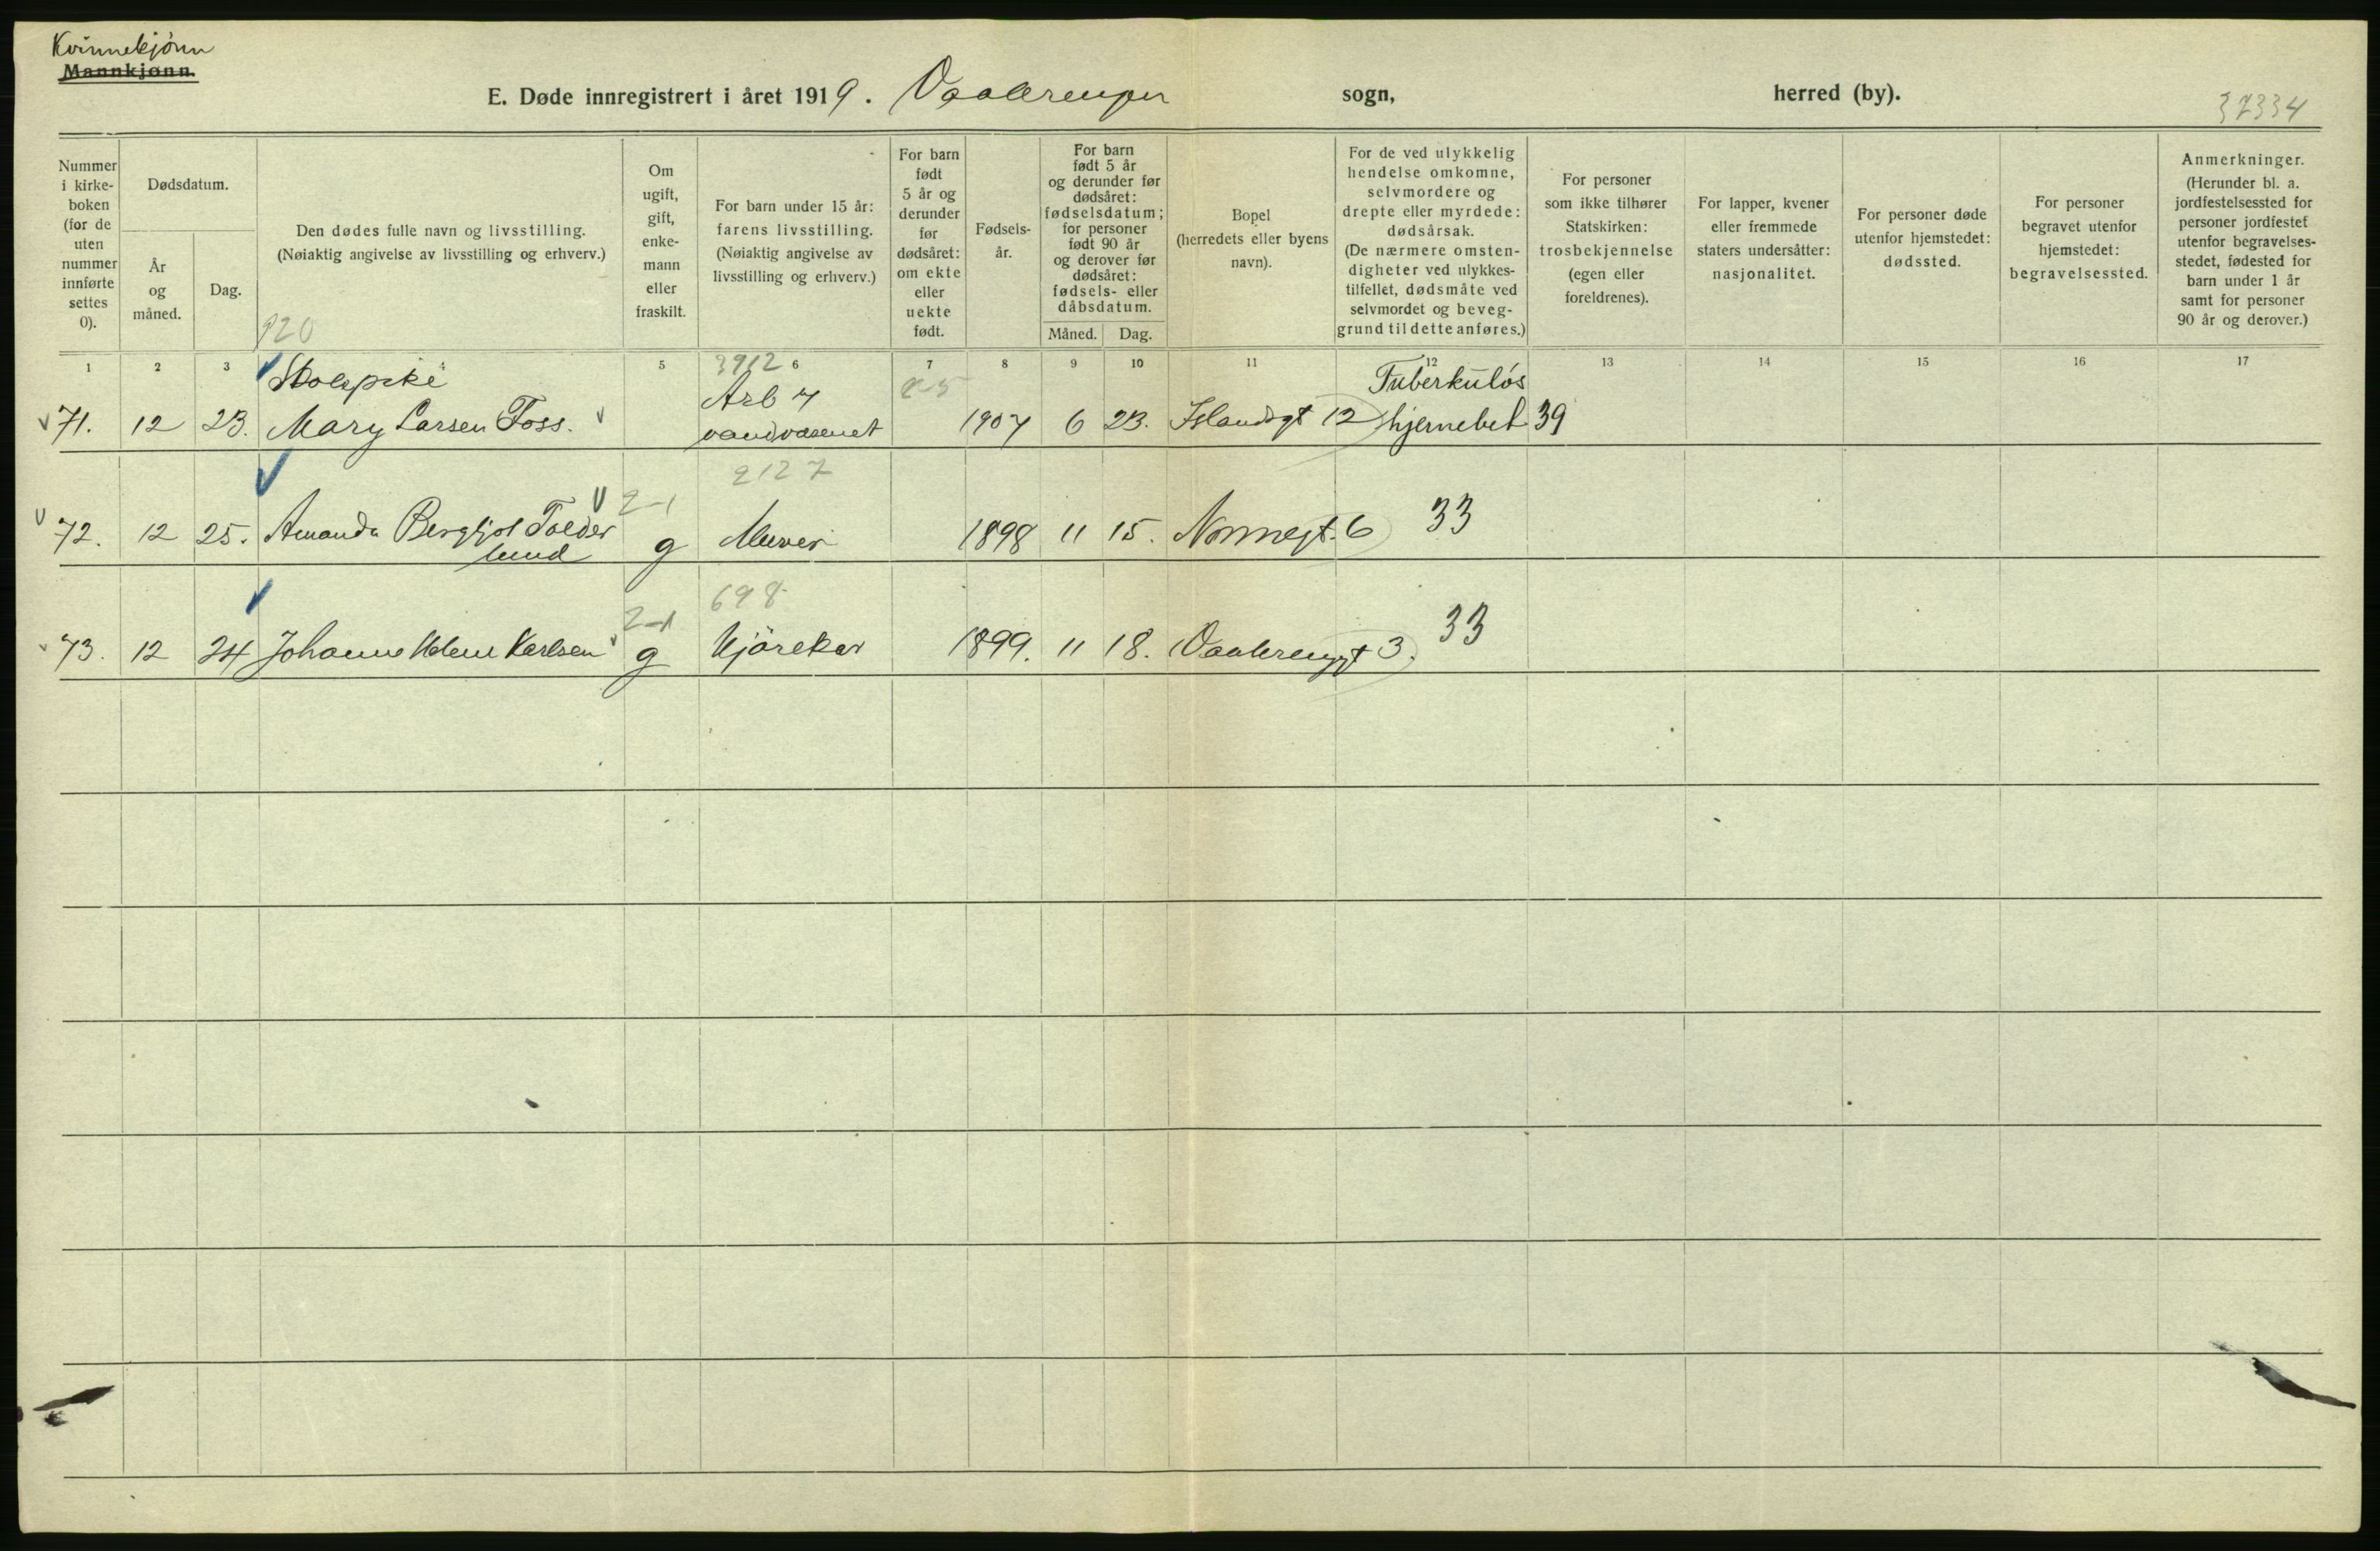 Kvinnekjønn
Mannkjønn.
E. Døde innregistrert i året 1919. Vaalerengen sogn, herred (by).
37334
Nummer i kirke-boken (for de uten nummer innførte settes 0).
Dødsdatum.
År og måned.
Dag.
Den dødes fulle navn og livsstilling.
(Nøiaktig angivelse av livsstilling og erhverv.)
920
Om ugift, gift, enke-mann eller fraskilt.
For barn under 15 år: farens livsstilling. (Nøiaktig angivelse av livsstilling og erhverv.)
For barn født 5 år og derunder før dødsåret: om ekte eller uekte født.
Fødsels-år.
For barn født 5 år og derunder før dødsåret: fødselsdatum; for personer født 90 år og derover før dødsåret: fødsels- eller dåbsdatum.
Måned. Dag.
Bopel (herredets eller byens navn).
For de ved ulykkelig hendelse omkomne, selvmordere og drepte eller myrdede: dødsårsak. (De nærmere omsten-digheter ved ulykkes-tilfellet, dødsmåte ved selvmordet og beveg-grund til dette anføres.)
For personer som ikke tilhører Statskirken: trosbekjennelse (egen eller foreldrenes).
For lapper, kvener eller fremmede staters undersåtter: nasjonalitet.
For personer døde utenfor hjemstedet: dødssted.
For personer begravet utenfor hjemstedet: begravelsessted.
Anmerkninger. (Herunder bl. a. jordfestelsessted for personer jordfestet utenfor begravelses-stedet, fødested for barn under 1 år samt for personer 90 år og derover.)
1 2 3 4 5 6 7 8 9 10 11 12 13 14 15 16 17
Skolepike 3912 Arb v Tuberkuløs
71. 12 23. Mary Larsen Foss. vandvæsenet 1907 6 23. Islandsgt 12 hjernebet 39
2-1 2127
72. 12 25. Amanda Bergljot Tolders g Murer 1898 11 15. Normegt. 6 33
lund
2-1 698
73. 12 24 Johanne Helene Karlsen g Kjørekar 1899. 11 18. Vaalerenggt 3. 33